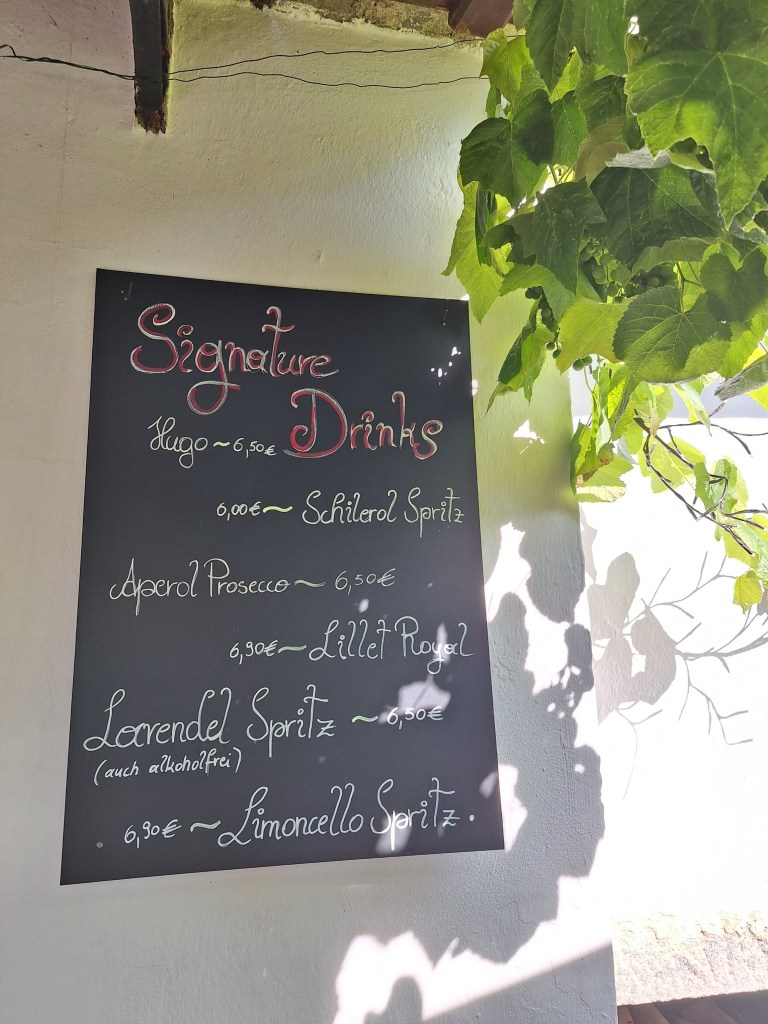 Signature
Drinks
Hugo ~ 6,50€
6,00€ ~ Schilerol Spritz
Aperol Prosecco ~ 6,50€
6,90€ ~ Lillet Royal
Lavendel Spritz ~ 6,50€
(auch alkoholfrei)
6,90€ ~ Limoncello Spritz.